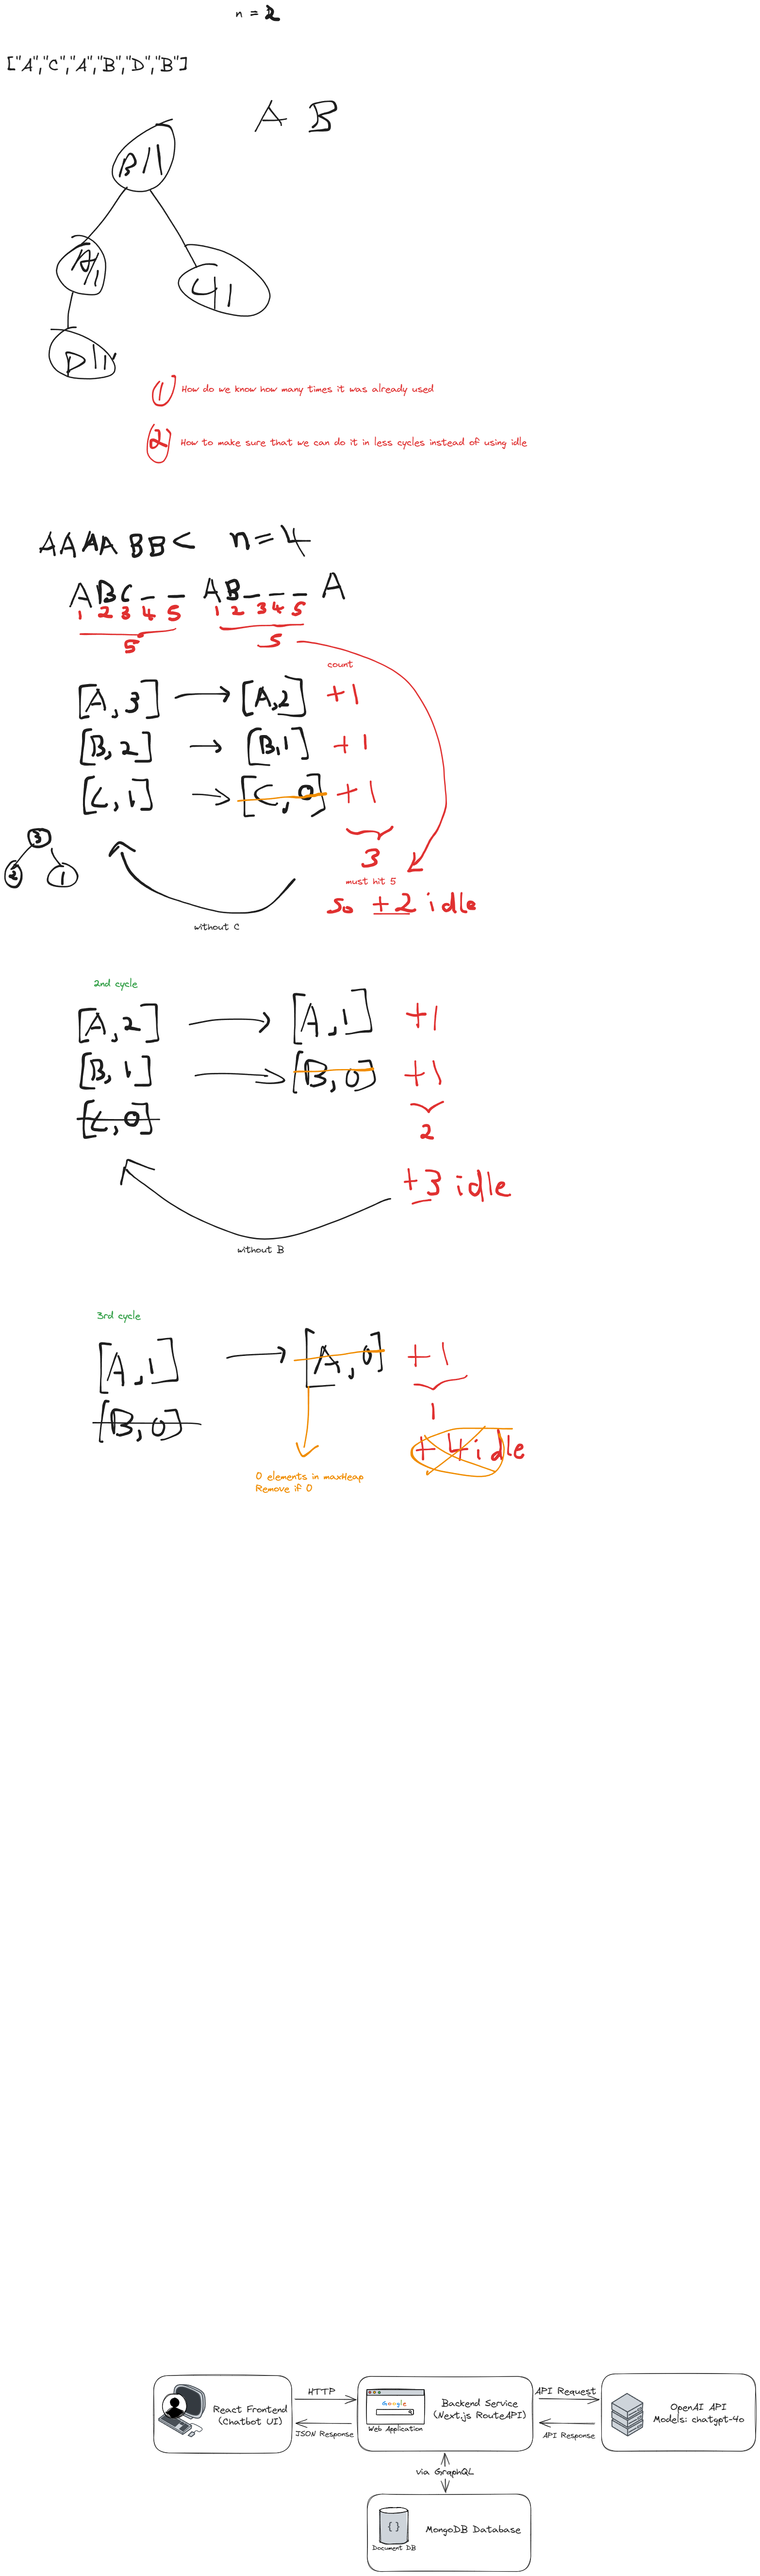 n = 2
["A","C","A","B","D","B"]
A B
B/1
A/1
C/1
D/1
1 How do we know how many times it was already used
2 How to make sure that we can do it in less cycles instead of using idle
AAAA BB C n=4
A B C _ _ A B _ _ _ A
1 2 3 4 5 1 2 3 4 5
5 5
count
[A, 3] [A,2] +1
[B, 2] [B,1] +1
[C, 1] [C, 0] +1
3
2 1
3
must hit 5
so +2 idle
without C
2nd cycle
[A, 2] [A, 1] +1
[B, 1] [B, 0] +1
[C, 0]
2
+3 idle
without B
3rd cycle
[A, 1] [A, 0] +1
[B, 0]
1
+ 4 idle
0 elements in maxHeap
Remove if 0
React Frontend
(Chatbot UI)
HTTP
JSON Response
Google
Web Application
Backend Service
(Next.js RouteAPI)
API Request
API Response
OpenAI API
Models: chatgpt-4o
via GraphQL
{ }
Document DB
MongoDB Database